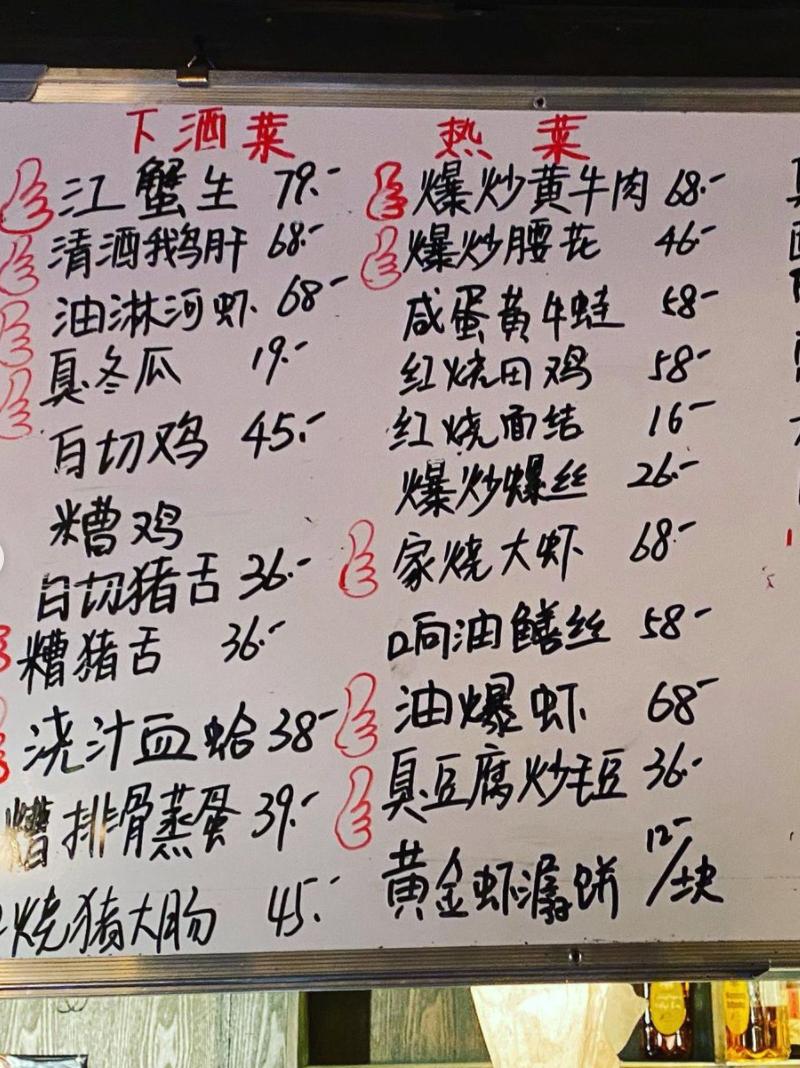 下酒菜
江蟹生 79.-
清酒鹅肝 68.-
油淋河虾 68-
臭冬瓜 19.-
白切鸡 45.-
糟鸡
白切猪舌 36.-
糟猪舌 36.-
浇汁血蛤 38-
糟排骨蒸蛋 39.-
烧猪大肠 45.-
热菜
爆炒黄牛肉 68.-
爆炒腰花 46.-
咸蛋黄牛蛙 58-
红烧田鸡 58-
红烧面结 16-
爆炒螺丝 26.-
家烧大虾 68.-
响油鳝丝 58-
油爆虾 68-
臭豆腐炒毛豆 36.-
黄金虾潺饼 12-/块